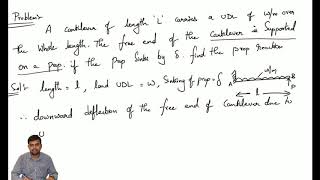 Problem:
A cantilever of length 'L' carries a UDL of w/m over
the whole length. The free end of the cantilever is supported
on a prop. if the prop sinks by δ. find the prop reaction
Sol:- length = l, load UDL = w, Sinking of prop = δ
w/m
A
B
l
∴ downward deflection of the free end of cantilever due to
U